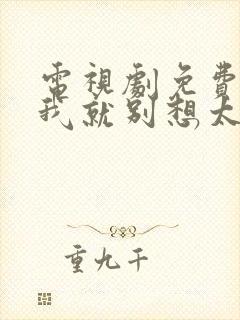 電視劇免費
我就別想太
重九千